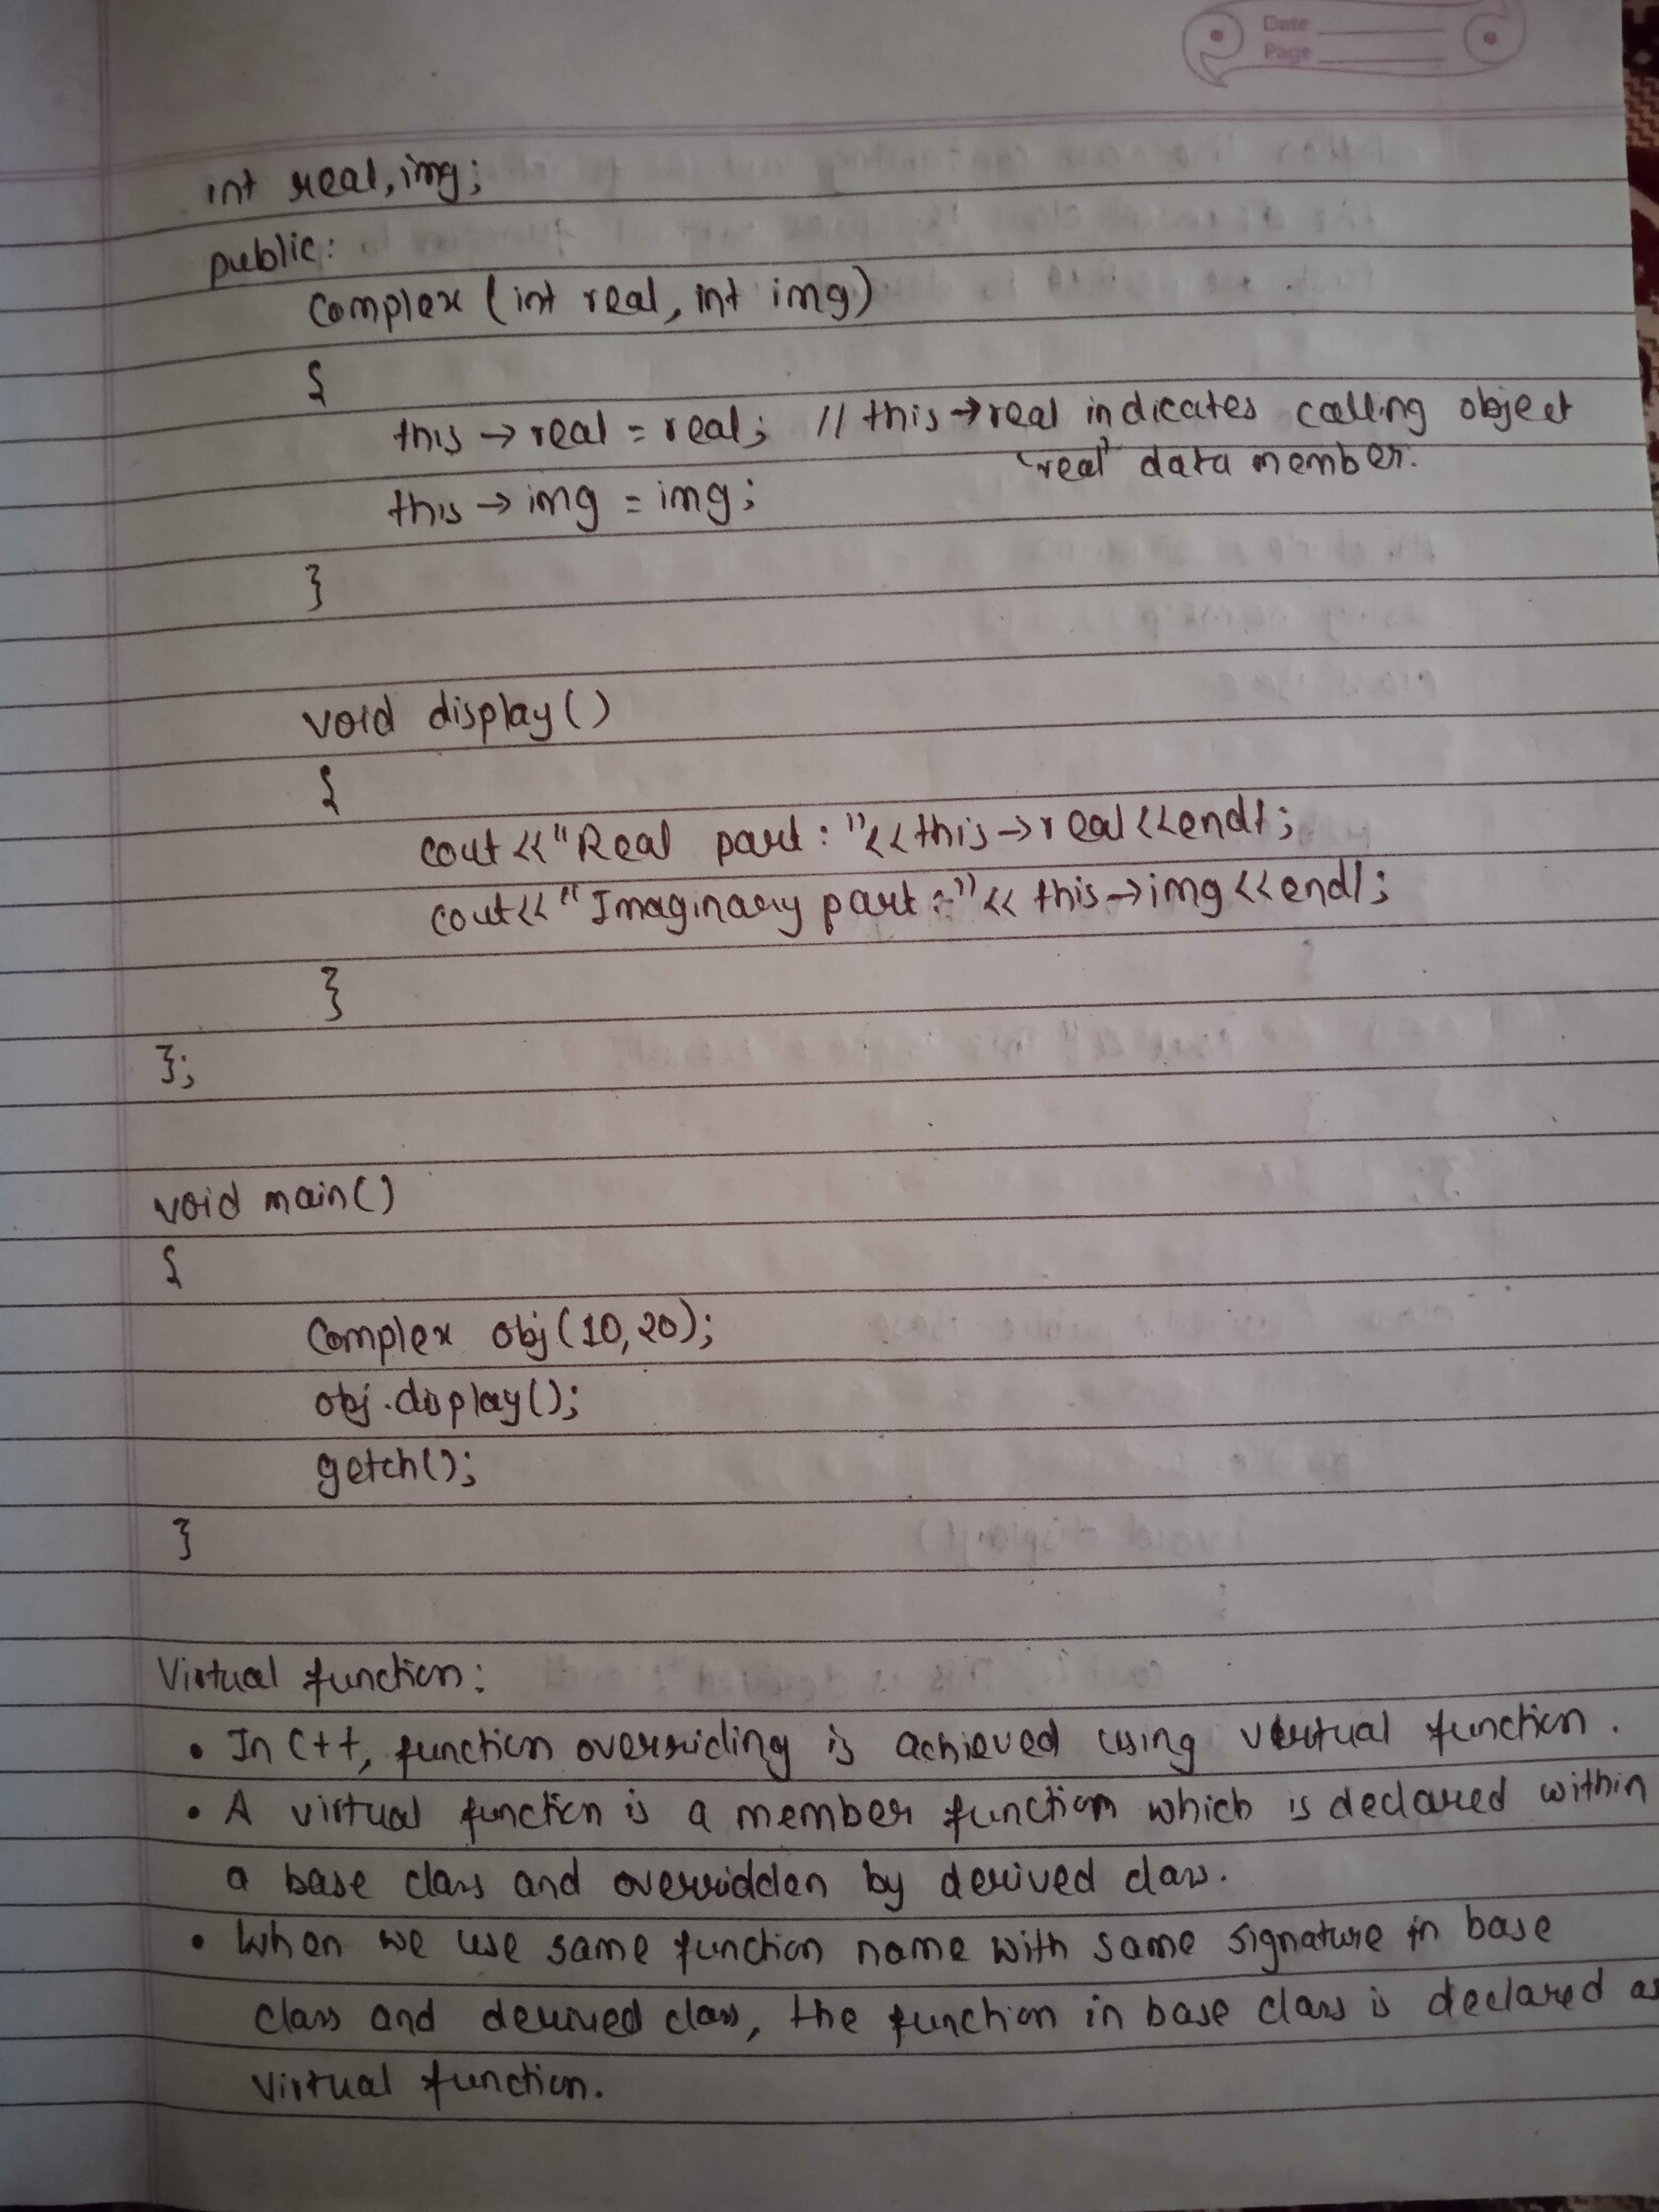 Date
Page
int real,img;
public:
Complex (int real, int img)
{
this → real = real; // this → real indicates calling object
'real' data member.
this → img = img;
}
void display()
{
cout << "Real part : "<<this→real<<endl;
cout<< "Imaginary part :"<< this→img<<endl;
}
};
void main()
{
Complex obj(10,20);
obj.display();
getch();
}
Virtual function:
• In C++, function overriding is achieved using virtual function.
• A virtual function is a member function which is declared within
a base class and overridden by derived class.
• When we use same function name with same signature in base
class and derived class, the function in base class is declared as
virtual function.